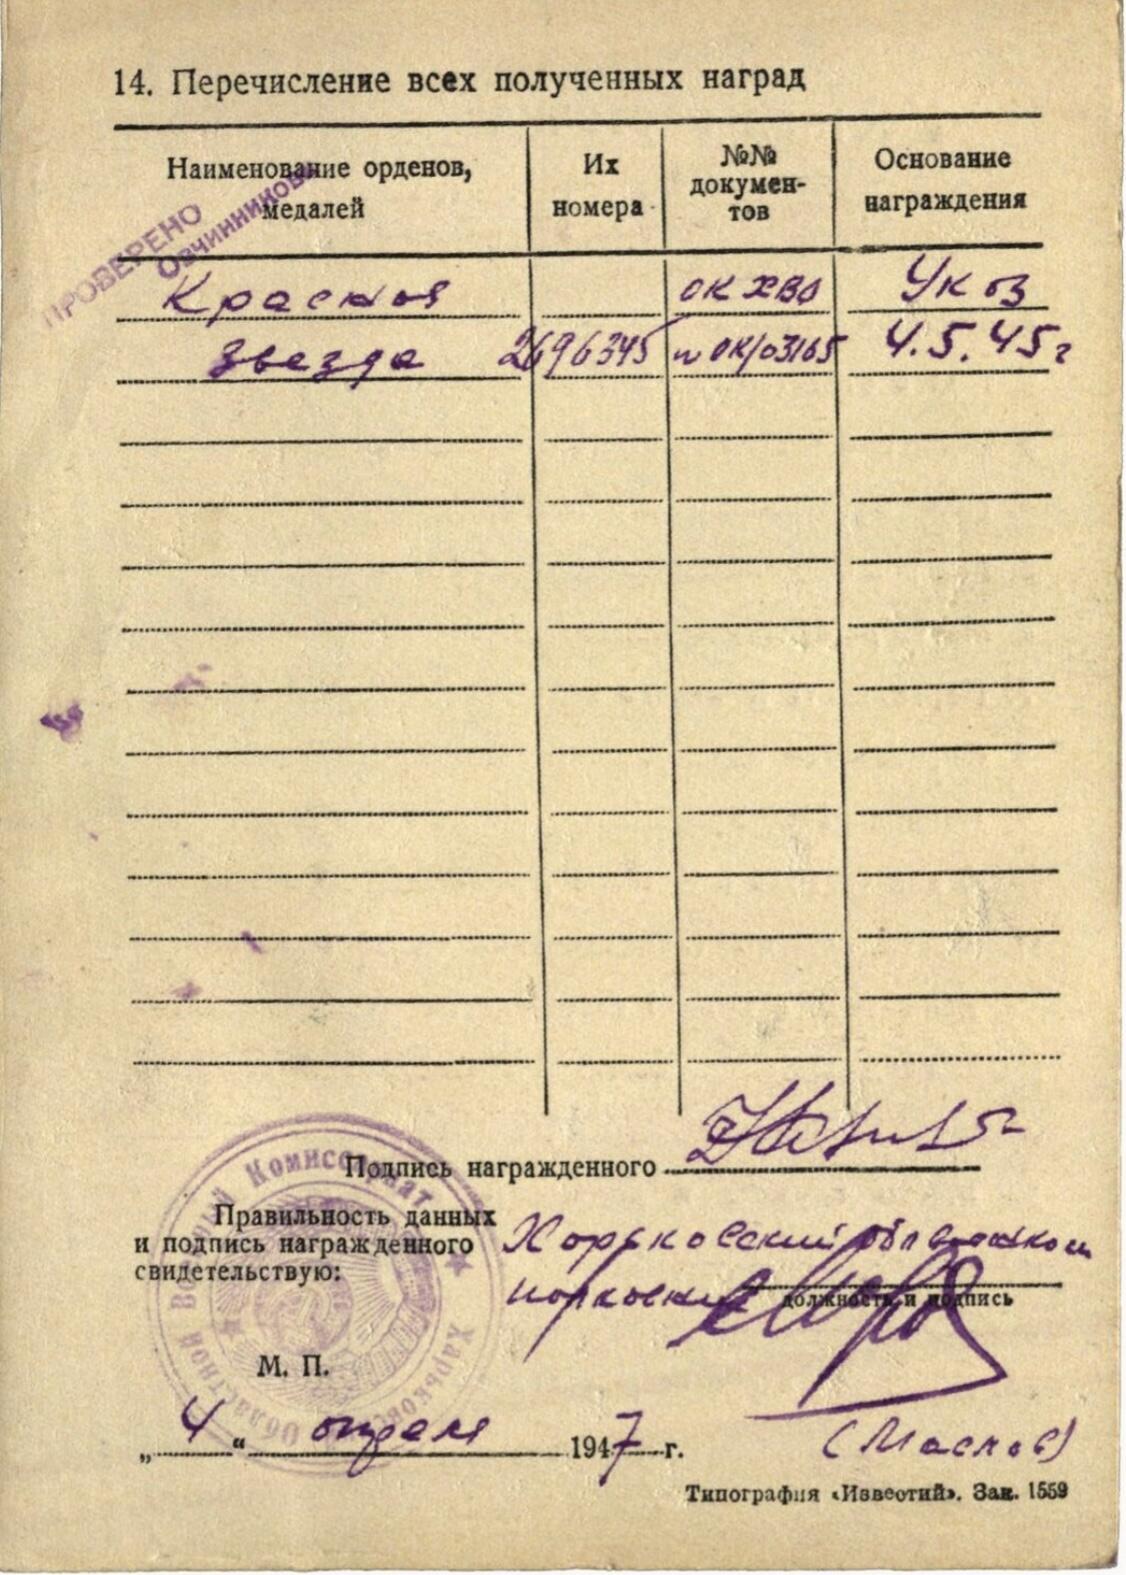 14. Перечисление всех полученных наград
Наименование орденов, медалей
Их номера
№№ докумен-тов
Основание награждения
ПРОВЕРЕНО
Овчинникова
Красная ОК ХВО Указ
звезда 2696345 № ОК/03165 4.5.45г
Подпись награжденного
Правильность данных
и подпись награжденного
свидетельствую:
Харьковский облвоенком
полковник
должность и подпись
Харьковский Областной Военный Комиссариат
М. П.
„4“ апреля 1947 г.
(Маслов)
Типография «Известий». Зак. 1559